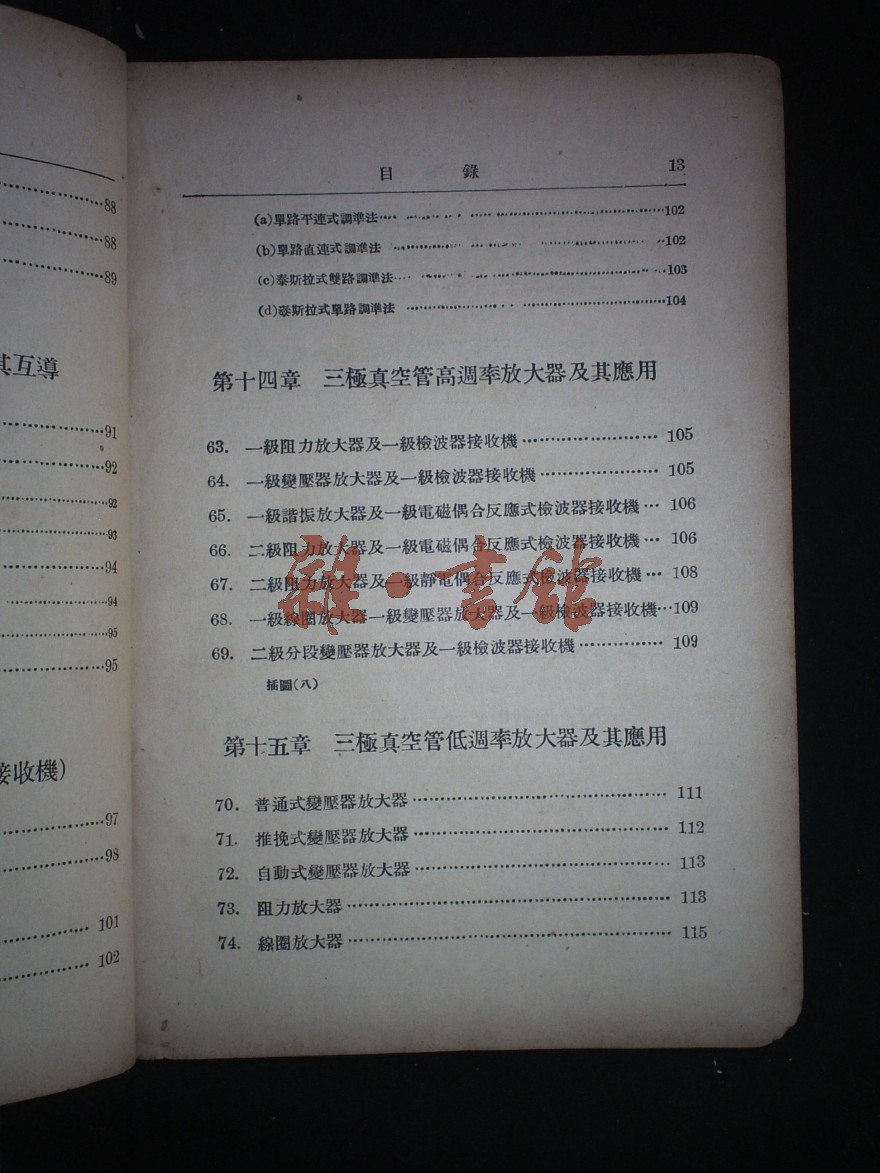 88
88
89
其互導
91
92
92
93
94
94
95
95
接收機)
97
98
101
102
目 錄 13
(a)單路平連式調準法 102
(b)單路直連式調準法 102
(c)泰斯拉式雙路調準法 103
(d)泰斯拉式單路調準法 104
第十四章 三極真空管高週率放大器及其應用
63. 一級阻力放大器及一級檢波器接收機 105
64. 一級變壓器放大器及一級檢波器接收機 105
65. 一級諧振放大器及一級電磁偶合反應式檢波器接收機 106
66. 二級阻力放大器及一級電磁偶合反應式檢波器接收機 106
67. 二級阻力放大器及一級靜電偶合反應式檢波器接收機 108
68. 一級線圈放大器一級變壓器放大器及一級檢波器接收機 109
69. 二級分段變壓器放大器及一級檢波器接收機 109
插圖(八)
雜·書館
第十五章 三極真空管低週率放大器及其應用
70. 普通式變壓器放大器 111
71. 推挽式變壓器放大器 112
72. 自動式變壓器放大器 113
73. 阻力放大器 113
74. 線圈放大器 115